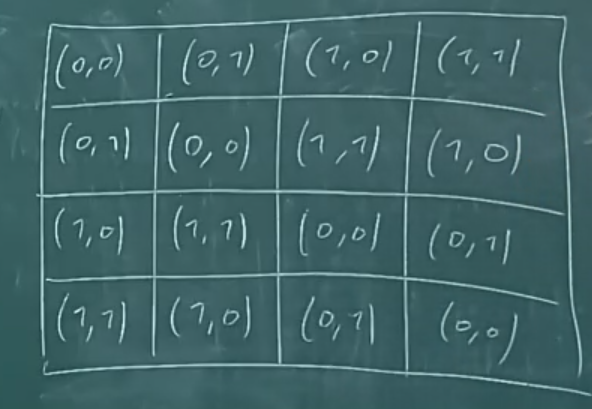 (0,0) (0,1) (1,0) (1,1)
(0,1) (0,0) (1,1) (1,0)
(1,0) (1,1) (0,0) (0,1)
(1,1) (1,0) (0,1) (0,0)